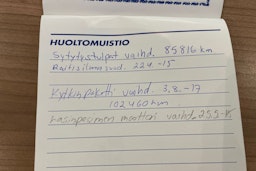 HUOLTOMUISTIO
Sytytystulpat vaihd. 85816 km
Raitisilmasuod. 22.4 -15
Kytkinpaketti vaihd. 3.8.-17
102460 km
Lasinpesimen moottori vaihd. 25.5-18